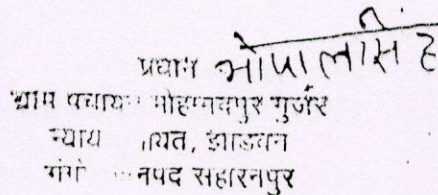 प्रधान भोपाल सिंह
ग्राम पंचायत मोहम्मदपुर गुर्जर
न्याय ायत, झाडवन
गंगो नपद सहारनपुर